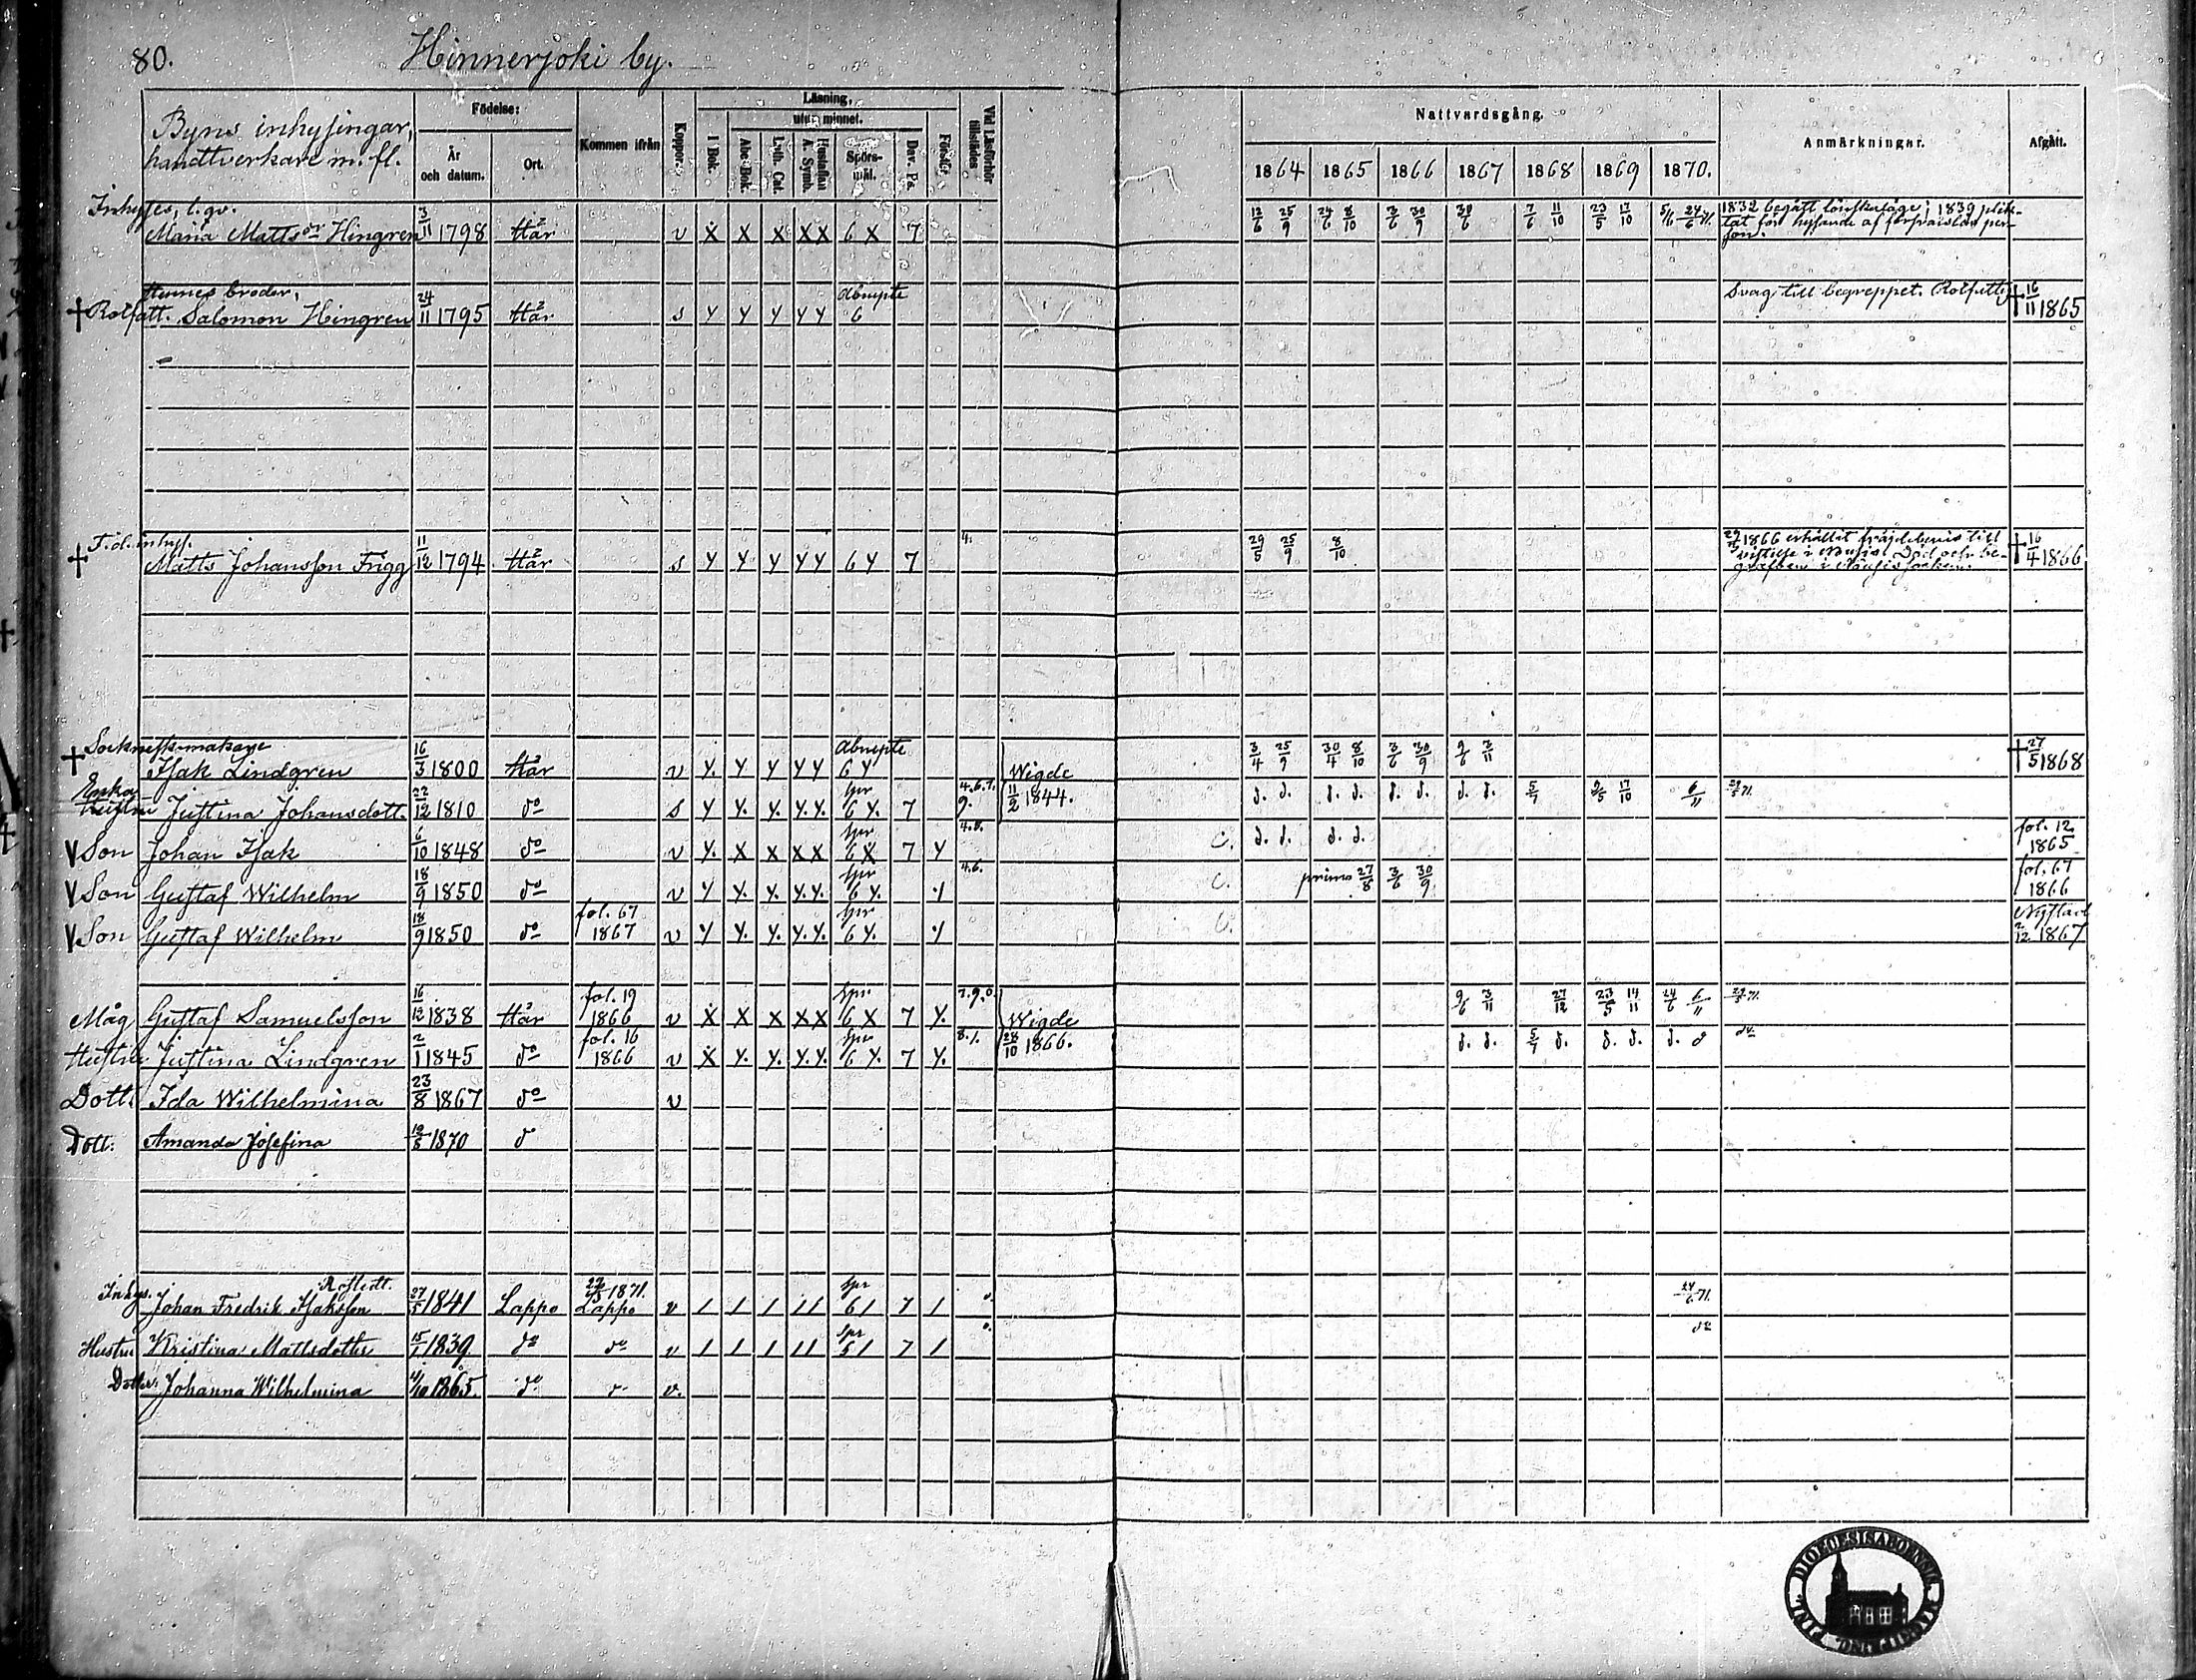 80. Hinnerjoki by.
Byns inhysingar,
handtverkare m. fl.
Födelse:
År och datum.
Ort.
Kommen ifrån
Koppor.
Läsning,
utur minnet.
I Bok.
Abc Bok.
Luth. Cat.
Hustaflan A. Symb.
Spörs-mål.
Dav. Ps.
Förstår
Vid Läsförhör tillstädes
Nattvardsgång.
1864 1865 1866 1867 1868 1869 1870.
Anmärkningar.
Afgått.
Inhyses, l. qv.
Maria Mattsdr Hingren 3/11 1798 Här v X X X XX 6 X 7 12/6 25/9 24/6 8/10 3/6 30/9 30/6 7/6 11/10 23/5 17/10
1832 begått lönskerläge; 1839 plik-
tat för hysande af försvarslös per-
son.
Hennes broder,
† Rotfatt. Salomon Hingren 24/11 1795 Här s y y y y y Abrupte 6 Svag till begreppet. † 16/11 1865
F. d. inhys.
† Matts Johansson Frigg 11/12 1794 Här s y y y y y 6 y 7 4. 29/5 25/9 8/10 1866 erhållit † 16/4 1866
† Isak Lindgren 16/3 1800 Här v y. y y y y Abrupte 6 y Wigde 3/4 25/9 30/4 8/10 3/6 30/9 9/6 3/11 † 27/5 1868
Enka
Hustru Justina Johansdott. 22/12 1810 do s y y. y. y. y. Spr 6 y. 7 4.6.7. 9. 11/2 1844. d. d. d. d. d. d. d. d. 5/7 17/10 6/11
V Son Johan Isak 6/10 1848 do v y. X X X X Spr 6 X 7 y 4.5. C. d. d. d. d. fol. 12 1865
V Son Gustaf Wilhelm 18/9 1850 do v y y. y. y. y. Spr 6 y. 4.6. C. primo 27/8 3/6 30/9 fol. 67 1866
V Son Gustaf Wilhelm 18/9 1850 do fol. 67 1867 v y y. y. y. y. Spr 6 y. C. Nystad 2/12 1867
Måg Gustaf Samuelsson 16/12 1838 Här fol. 19 1866 v X X X X X Spr 6 X 7 y. 7.9.0 Wigde 9/6 3/11 27/12 23/5 14/11 24/6 6/11
Hustru Justina Lindgren 2/1 1845 do fol. 16 1866 v X y. y. y. y. Spr 6 y. 7 y. 28/10 1866. d. d. 5/7 d. d. d. d. d
Dott. Ida Wilhelmina 23/8 1867 do v
Dott: Amanda Josefina 1870 d
Inhys. Johan Fredrik Isaksson 27/5 1841 Lappo 1871. Lappo v / / / / / Spr 6 / 7 / 24/6 71.
Hustru Kristina Mattsdotter 1839 do do v / / / / / Spr 5 / 7 / do
Dotter. Johanna Wilhelmina 4/10 1865 do v.
DIOECESIS ABOENSIS